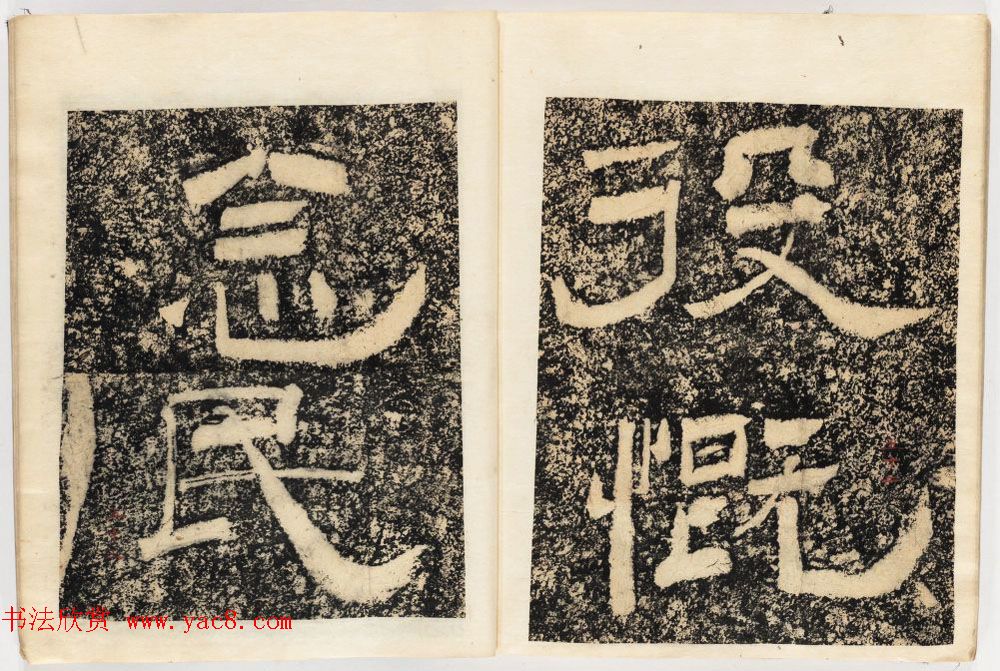 慨
念民
书法欣赏 www.yac8.com